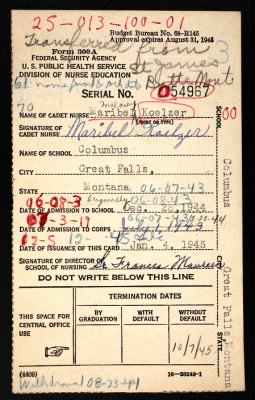 25-013-100-01
Budget Bureau No. 68-R145
Approval expires August 31, 1945
3
Transferred from
St James
Form 300A
FEDERAL SECURITY AGENCY
U. S. PUBLIC HEALTH SERVICE
DIVISION OF NURSE EDUCATION
Butte Mont
SERIAL NO. 054967
70
NAME OF CADET NURSE Maribel Koelzer
(PRINT OR TYPE)
SIGNATURE OF CADET NURSE Maribel Koelzer
NAME OF SCHOOL
Columbus
CITY
Great Falls,
STATE
Montana 06-07-43
06-08-3 Originally 06-08-43
DATE OF ADMISSION TO SCHOOL Dec. 28, 1944
DATE OF ADMISSION TO CORPS July 1, 1943
DATE OF ISSUANCE OF THIS CARD Jan. 4, 1945
SIGNATURE OF DIRECTOR OF SCHOOL OF NURSING Sr. Frances Maureen
SCHOOL
Columbus
CITY
Great Falls
Montana
DO NOT WRITE BELOW THIS LINE
THIS SPACE FOR CENTRAL OFFICE USE
TERMINATION DATES
BY GRADUATION
WITH DEFAULT
WITHOUT DEFAULT
10/7/45
16-38249-1
Withdrawal 08-23-44